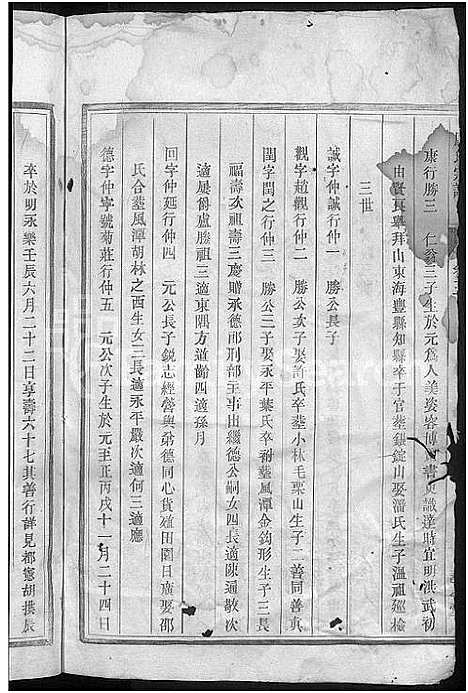 康行勝三 仁公三子生於元為人美姿容博 書史識達時宜明洪武初
由賢良舉拜山東海豐縣知縣卒于官塟銀錠山娶潘氏生子溫祖 檢
三世
誠字仲誠行仲一 勝公長子
觀字趙觀行仲二 勝公次子娶許氏卒塟小林毛栗山生子二善同善真
閏字閏之行仲三 勝公三子娶永平葉氏卒祔塟風潭金鈎形生子三長
福壽次祖壽三慶贈承德郎刑部主事出繼德公嗣女四長適陳遜敬次
適屍爵盧勝祖三適東隅方道餘四適孫月
回字仲延行仲四 元公長子銳志經營與弟德同心貨殖田園日廣娶邵
氏合塟風潭胡林之西生女三長適永平嚴次適何三適應
德字仲寧號菊莊行仲五 元公次子生於元至正丙戌十一月二十四日
卒於明永樂壬辰六月二十二日享壽六十七其善行詳見都憲胡 辰